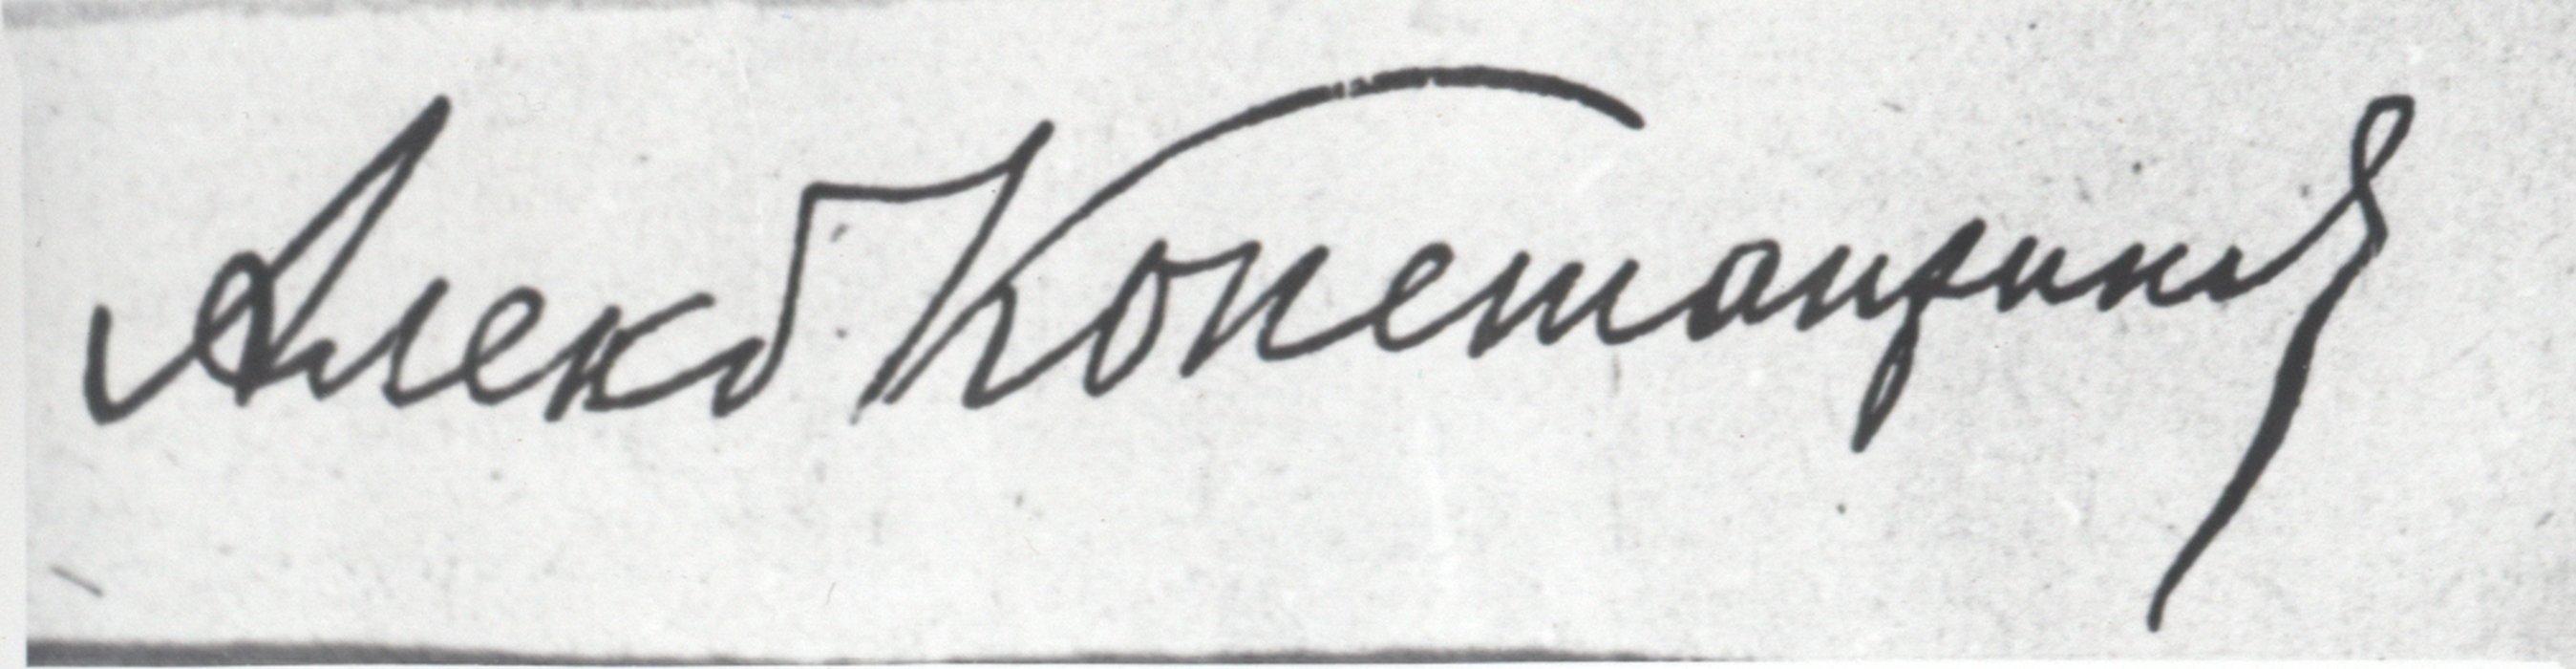 Алеко Константинов